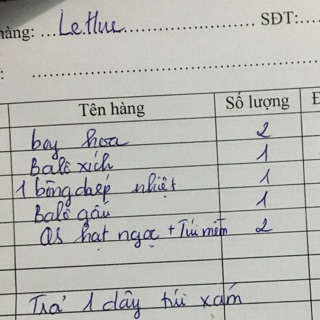 hàng: ... Le Hue ... SĐT:...
:
Tên hàng Số lượng Đ
boy hoa 2
Balô xích 1
1 bông dép nhiệt 1
Balô gấu 1
QS hạt ngọc + Túi mềm 2
Trả 1 dây túi xám